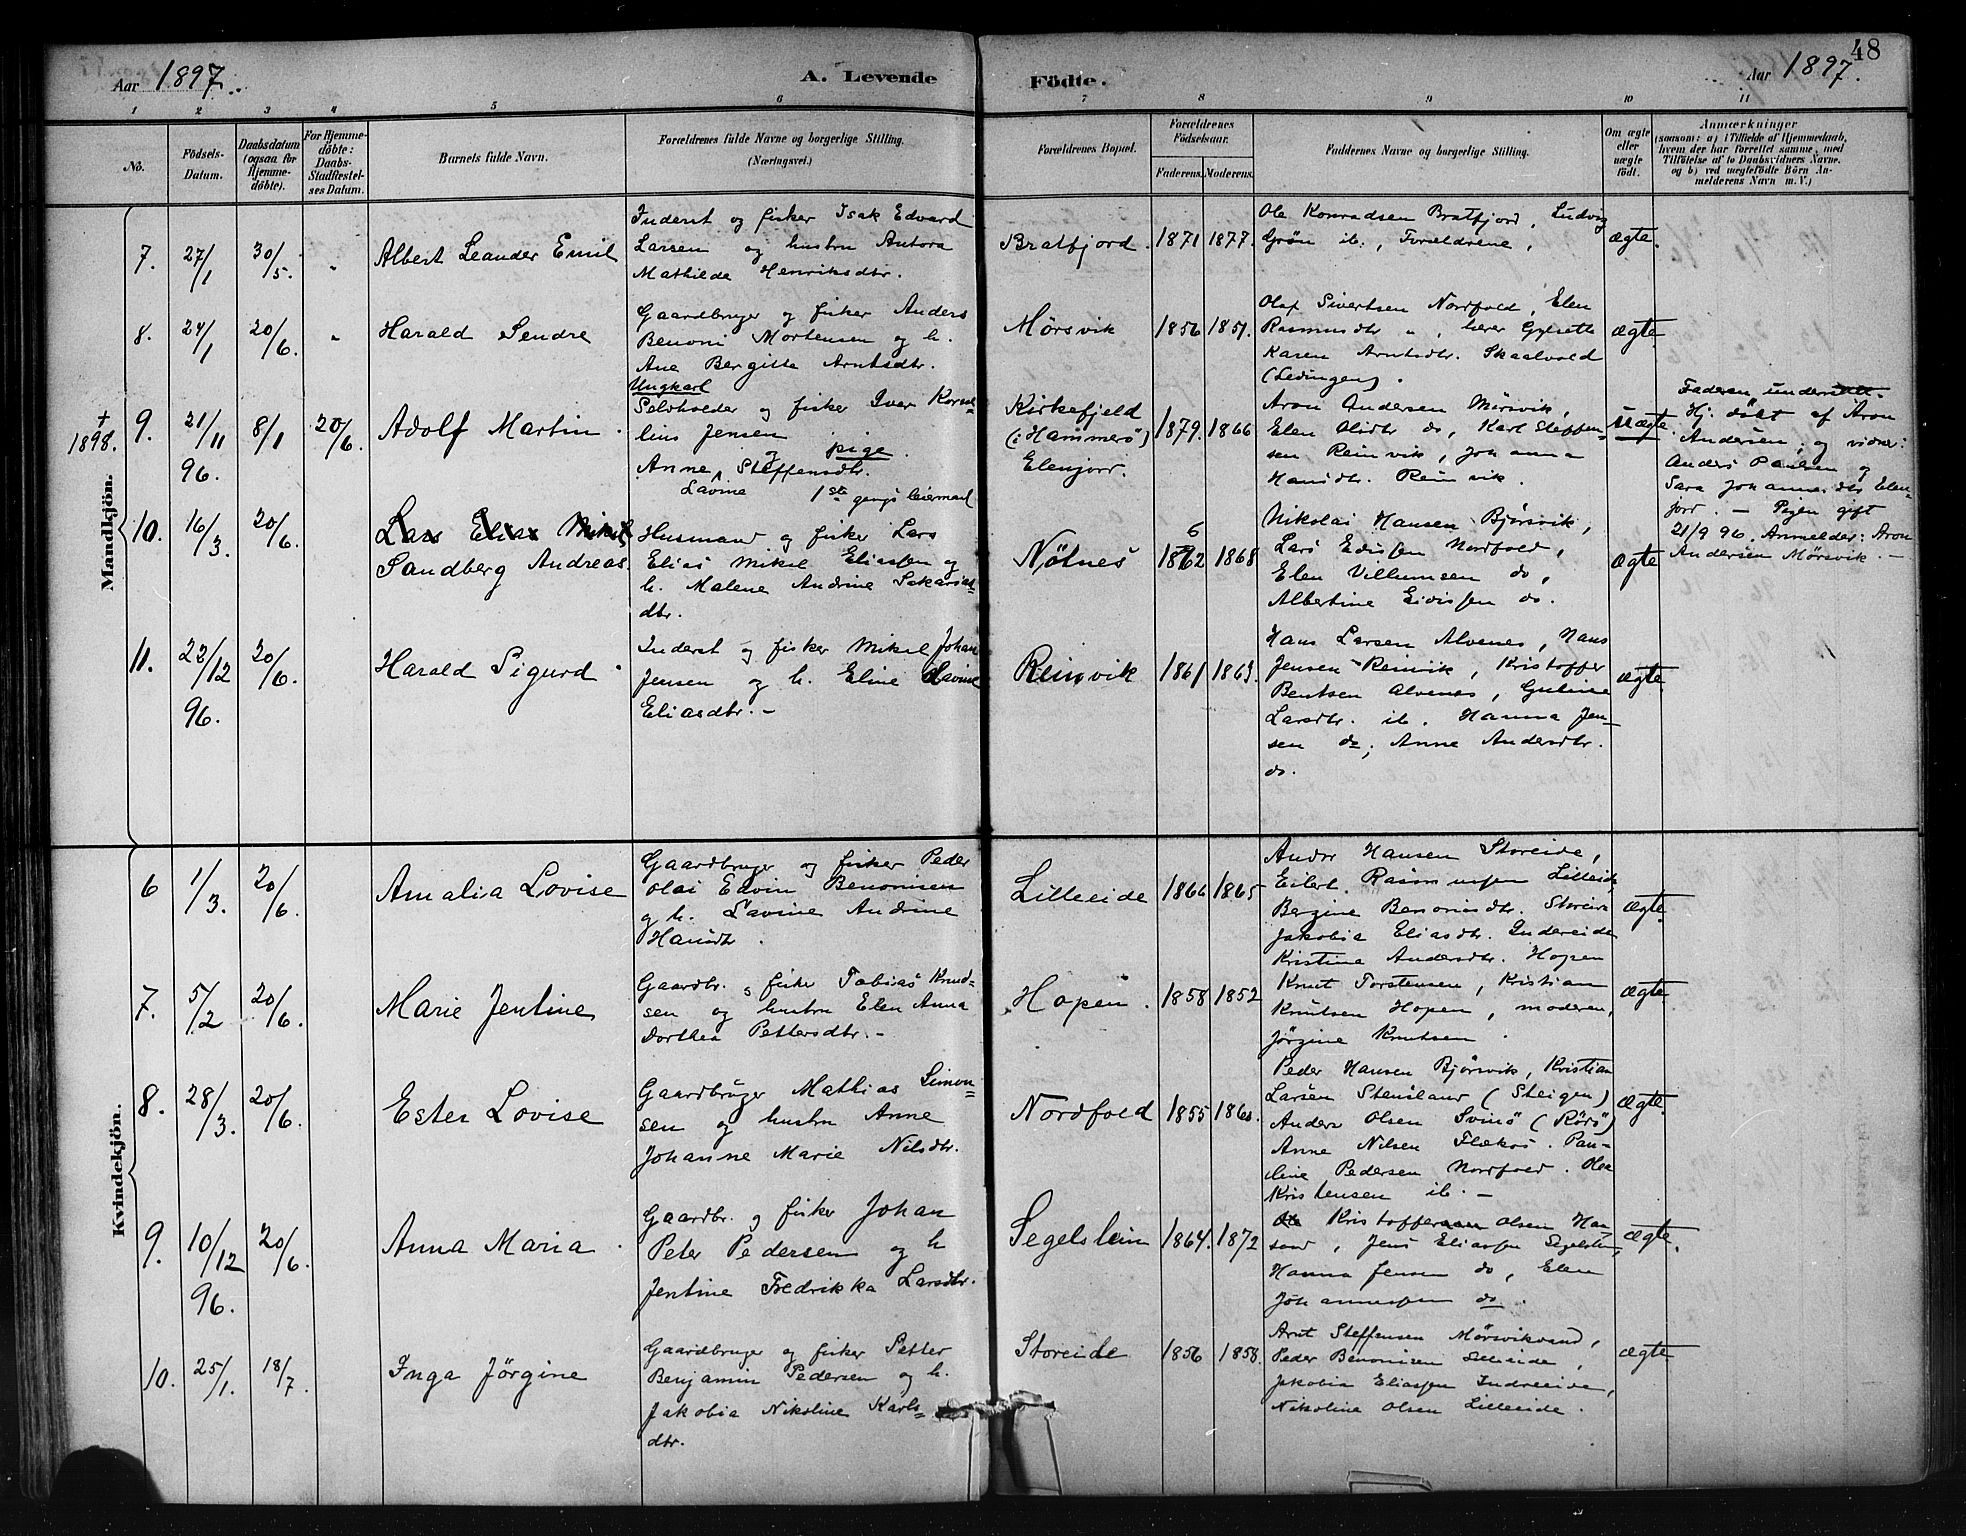 48
Aar 1897.
A. Levende
Födte.
Aar 1897.
1 2 3 4 5 6 7 8 9 10 11
No.
Födsels-
Datum.
Daabsdatum
(ogsaa for
Hjemme-
döbte).
For Hjemme-
döbte:
Daabs-
Stadfæstel-
ses Datum.
Barnets fulde Navn.
Forældrenes fulde Navne og borgerlige Stilling.
(Næringsvei.)
Forældrenes Bopæl.
Forældrenes
Födselsaar.
Faderens. Moderens.
Faddernes Navne og borgerlige Stilling.
Om ægte
eller
uægte
födt.
Anmærkninger
(saasom: a) i Tilfælde af Hjemmedaab,
hvem der har forrettet samme, med
Tilföielse af to Daabsvidners Navne.
og b) ved uægtefödte Börn An-
melderens Navn m. V.)
Mandkjön.
7. 27/1 30/5. "
Albert Leander Emil
Inderst og fisker Isak Edvard
Larsen og hustru Antora
Mathilde Henriksdtr.
Bratfjord. 1871 1877.
Ole Konradsen Bratfjord, Ludvig
Grøn ib:, Forældrene,
ægte.
8. 24/1 20/6. "
Harald Sendre
Gaardbruger og fisker Anders
Benoni Mortensen og h.
Ane Bergitte Arntsdtr.
Mørsvik 1856 1851.
Olaf Sivertsen Nordfold, Elen
Rasmusdtr " , lærer
Karen Arntsdtr. Skaalvold
(Lødingen).
ægte
† 1898.
9. 21/11 96. 8/1 20/6.
Adolf Martin.
Ungkarl
Selvholder og fisker Iver Korne-
lius Jensen og pige.
Anne, Steffensdtr.
Lavine 1ste gangs leiermaal
Kirkefjeld
(i Hammerö)
Elenjord.
1879. 1866
Aron Andersen Mörsvik,
Elen Olsdtr do, Karl Steffen-
sen Reinvik, Johanna
Hansdtr. Reinvik.
Uægte.
Faderen
Hj. döbt af Aron
Andersen; og vidner:
Anders Paulsen og
Sara Johannesdtr Elen-
jord. — Pigen gift
21/9 96. Anmelder: Aron
Andersen Mørsvik. —
10. 16/3. 20/6.
Lars Elias Mikal
Sandberg Andreas
Husmand og fisker Lars
Elias Mikel Eliassen og
h. Malene Andrine Sakarias-
dtr.
Nötnes 1862 1868
6
Nikolai Hansen Bjørsvik,
Lars Nordfold,
Elen Villumsen do,
Albertine do.
ægte
11. 22/12 96. 20/6.
Harald Sigurd.
Inderst og fisker Mikal Johan
Jensen og h. Eline Lavine
Eliasdtr. —
Reinvik 1861 1863.
Hans Larsen Alvenes, Hans
Jensen Reinvik, Kristoffer
Bentsen Alvenes, Guline
Larsdtr. ib. Hanna Jen-
sen do; Anne Andersdtr.
do.
ægte.
Kvindekjön.
6 1/3. 20/6.
Amalia Lovise
Gaardbruger og fisker Peder
Olai Edvin Benonisen
og h. Lavine Andrine
Hansdtr.
Lilleeide 1866 1865
Andor Hansen Storeide,
Eilert. Rasmussen Lilleeide
Bergine Benonisdtr. Storeide
Jakobia Eliasdtr. Indreeide
Kristine Andersdtr. Hopen
ægte.
7. 5/2 20/6.
Marie Jentine
Gaardbr. og fisker Tobias Knud-
sen og hustru Elen Anna
Dorthea Pettersdtr. —
Hopen. 1858 1852
Knut Torstensen, Kristian
Knutsen Hopen, moderen,
Jørgine Knutsen.
ægte
8. 28/3. 20/6.
Ester Lovise.
Gaardbrüger Mathias Simon-
sen og hustru Anne
Johanne Marie Nilsdtr.
Nordfold 1855 1860.
Peder Hansen Bjørsvik, Kristian
Larsen Stensland (Steigen)
Anders Olsen Svinö (Rörö)
Anne Nilsen Flækøs. Pau-
line Pedersen Nordfold. Olea
Kristensen ib. —
ægte.
9. 10/12 96. 20/6.
Anna Maria.
Gaardbr. og fisker Johan
Peter Pedersen og h
Jentine Fredrikka Larsdtr.
Segelstein 1864. 1872
Ole Kristoffersen Olsen Han-
sand, Jens Eliassen Segelsten,
Hanna Jensen do, Elen
Johannessen do.
ægte.
10. 25/1. 18/7.
Inga Jörgine
Gaardbruger og fisker Petter
Benjamin Pedersen og h.
Jakobia Nikoline Karls-
dtr.
Storeide 1856 1858.
Arnt Steffensen Mörsvikvand,
Peder Benonisen Lilleeide,
Jakobia Eliassen Indreeide,
Nikoline Olsen Lilleeide.
ægte